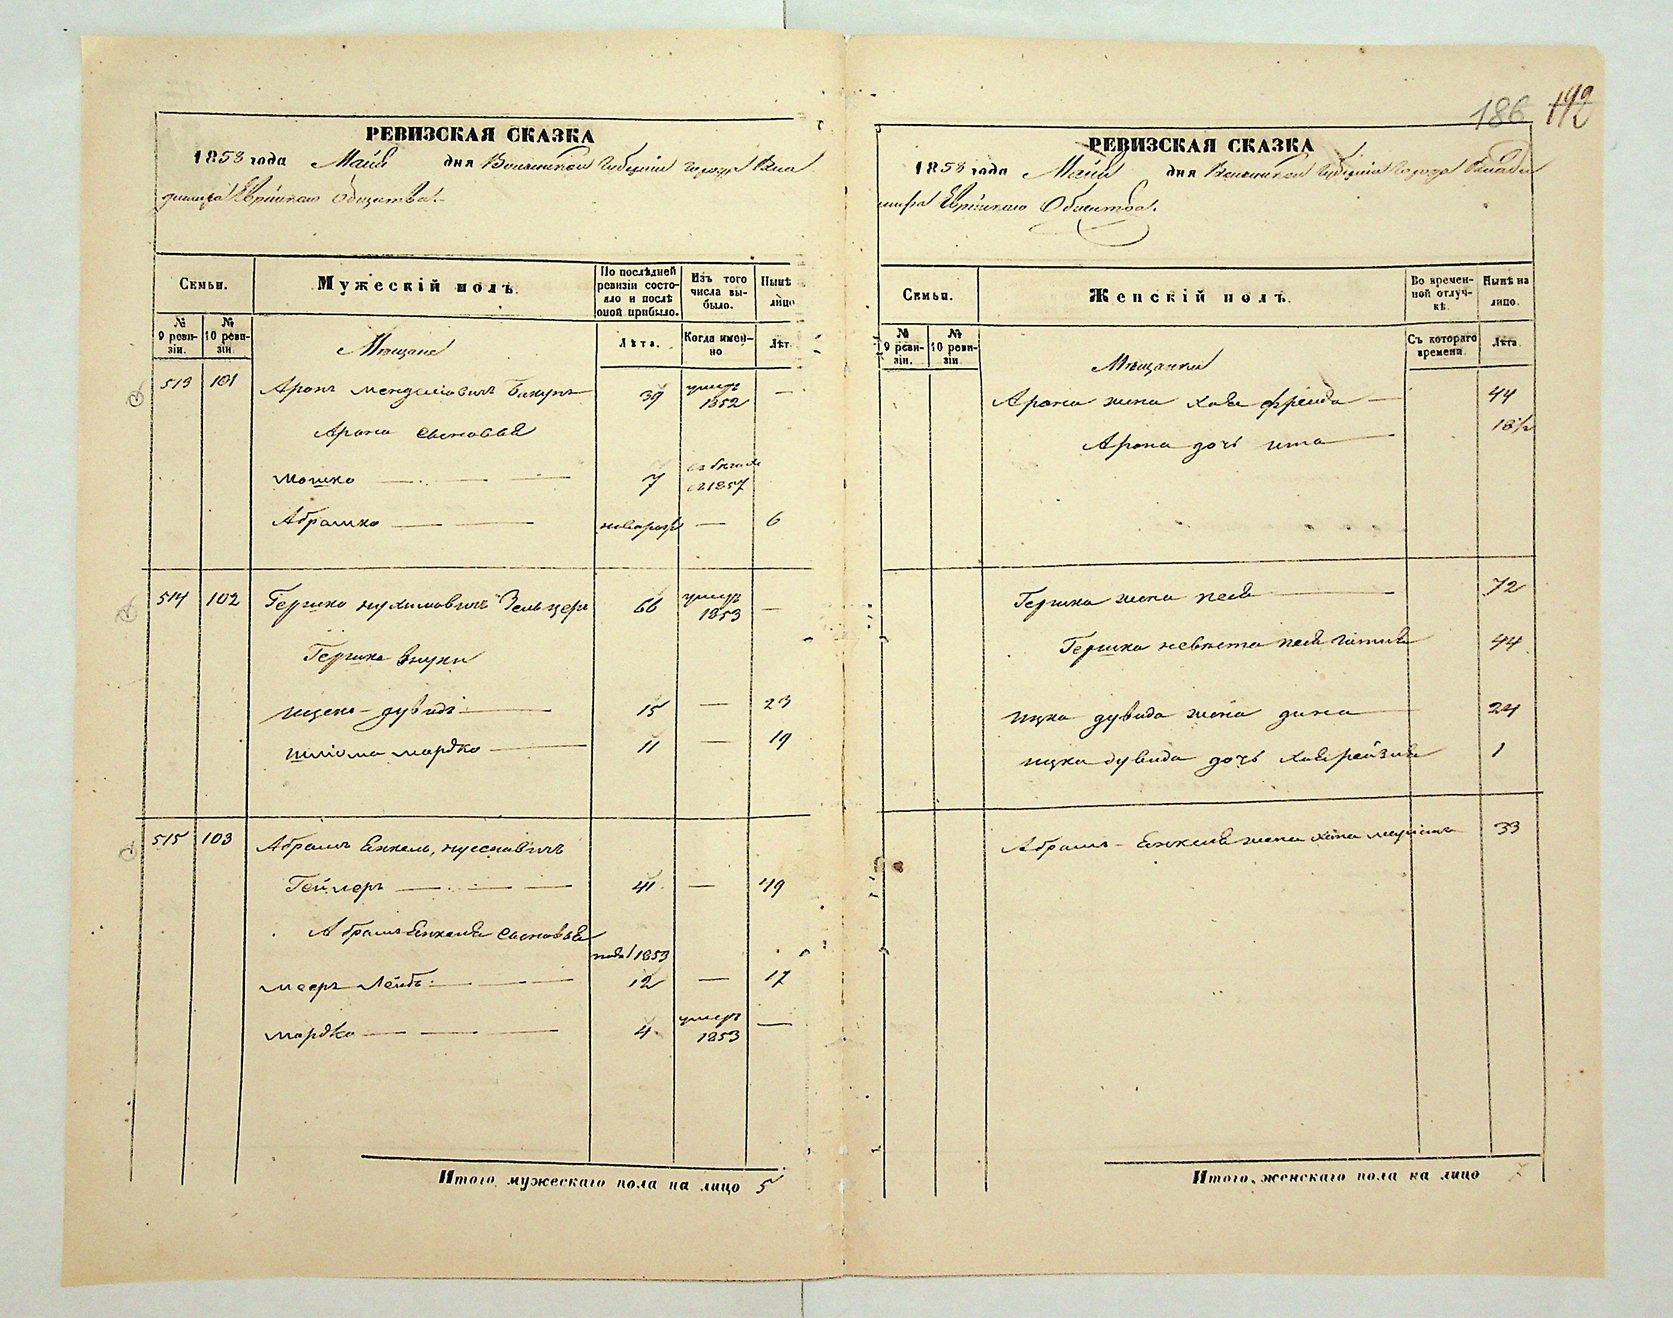 186 192
РЕВИЗСКАЯ СКАЗКА
1858 года Майя дня Волынской Губерніи города Влад
димира Еврейскаго Общества.
Семьи.
Мужескій полъ.
По послѣдней ревизіи состояло и послѣ оной прибыло.
Изъ того числа выбыло.
Нынѣ лицо
№ 9 ревизіи.
№ 10 ревизіи.
Мѣщане
Лѣта.
Когда именно
Лѣт
513 101 Аронъ Менделіовичъ 39 умеръ 1852 —
Арона сыновья
Мошко — 7 въ бегахъ съ 1857
Абрамко — новорож — 6
514 102 Гершко Нухимовичъ Зельцеръ 66 умеръ 1853 —
Гершка внуки
Ицько-Дувидъ — 15 — 23
Шліома Мардко — 11 — 19
515 103 Абрамъ Енкель, Нусенавичъ
Геймеръ — 41 — 49
Абрамъ Енкеля сыновья
1853
Мееръ Лейбъ — 12 — 17
Мардко — 4 умеръ 1853 —
Итого мужескаго пола на лицо 5
РЕВИЗСКАЯ СКАЗКА
1858 года Майя дня Волынской Губерніи города Влади
мира Еврейскаго Общества.
Семьи.
Женскій полъ.
Во временной отлучкѣ.
Нынѣ на лицо.
№ 9 ревизіи.
№ 10 ревизіи.
Мѣщанки
Съ котораго времени.
Лѣта.
Арона жена Хая Фрейда — 44
Арона дочь Ита — 18 1/2
Гершка жена Песя — 72
Гершка невѣста Песя Гитля 44
Ицка Дувида жена Дина — 24
Ицка Дувида дочь Хая Рейзля 1
Абрамъ-Енкеля жена 33
Итого женскаго пола на лицо 7